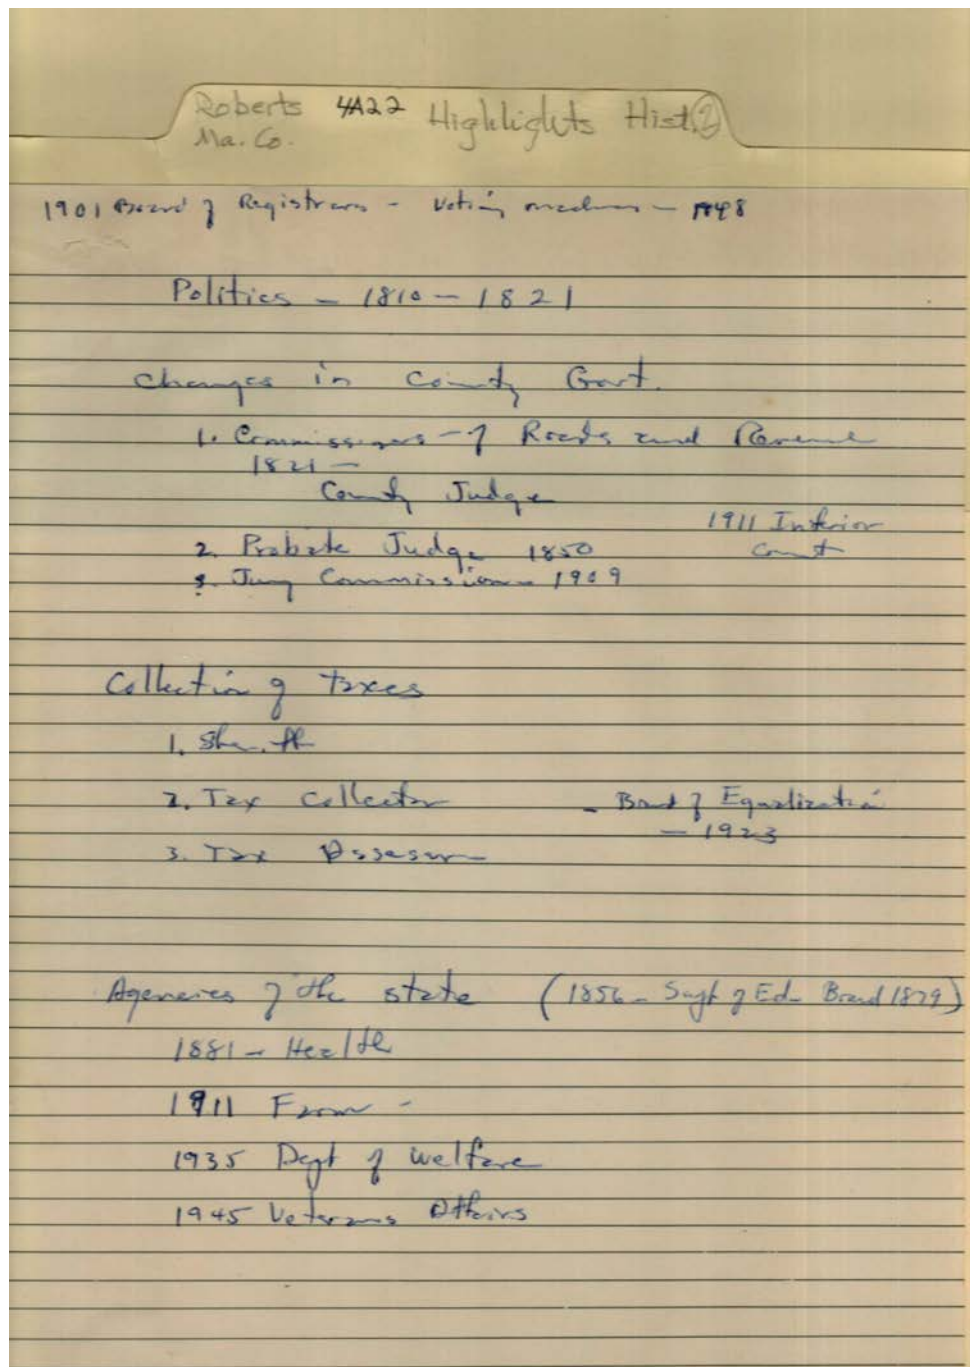 Roberts 4A22 Highlights Hist. 2
Ma. Co.
1901 Board of Registrars - Voting machines - 1948
Politics - 1810 - 1821
Changes in County Govt.
1. Commissioners - of Roads and Revenue
1821 -
County Judge
1911 Inferior
Court
2. Probate Judge 1850
3. Jury Commission - 1909
Collection of taxes
1. Sheriff
2. Tax Collector
- Board of Equalization
- 1923
3. Tax Assessor
Agencies of the state (1856 - Supt of Ed - Board 1879)
1881 - Health
1911 Farm -
1935 Dept of Welfare
1945 Veterans Affairs